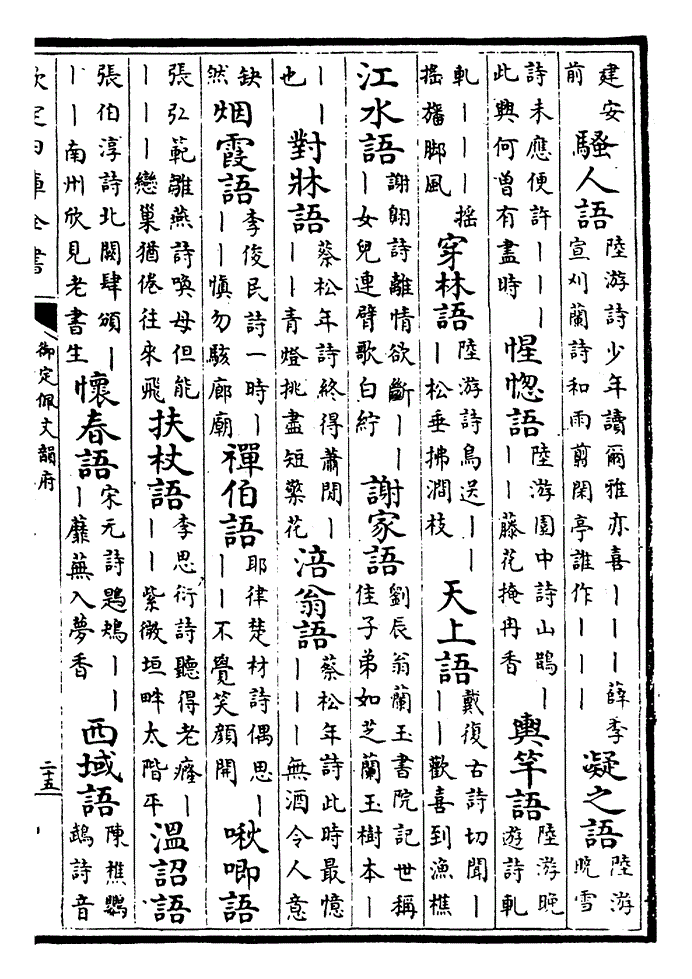 建安
前
騷人語
陸游詩少年讀爾雅亦喜｜｜｜薛季
宣刈蘭詩和雨剪閑亭誰作｜｜｜
凝之語
陸游
晚雪
詩未應便許｜｜｜
此興何曾有盡時
惺惚語
陸游園中詩山鵲｜
｜｜藤花掩冉香
輿竿語
陸游晚
遊詩軋
軋｜｜｜摇
摇旛脚風
穿林語
陸游詩鳥送｜｜
｜松垂拂澗枝
天上語
戴復古詩切聞｜
｜｜歡喜到漁樵
江水語
謝翱詩離情欲斷｜｜
｜女兒連臂歌白紵
謝家語
劉辰翁蘭玉書院記世稱
佳子弟如芝蘭玉樹本｜
｜｜
也
對牀語
蔡松年詩終得蕭閒｜
｜｜青燈挑盡短檠花
涪翁語
蔡松年詩此時最憶
｜｜｜無酒令人意
缺
然
烟霞語
李俊民詩一時｜
｜｜慎勿駭廊廟
禪伯語
耶律楚材詩偶思｜
｜｜不覺笑顔開
啾唧語
張弘範雛燕詩喚母但能
｜｜｜戀巢猶倦往來飛
扶杖語
李思衍詩聽得老癃｜
｜｜紫微垣畔太階平
溫詔語
張伯淳詩北闕肆頒｜
｜｜南州欣見老書生
懷春語
宋元詩鶗鴂｜｜
｜蘼蕪入夢香
西域語
陳樵鸚
鵡詩音
欽定四庫全書
御定佩文韻府
二十五